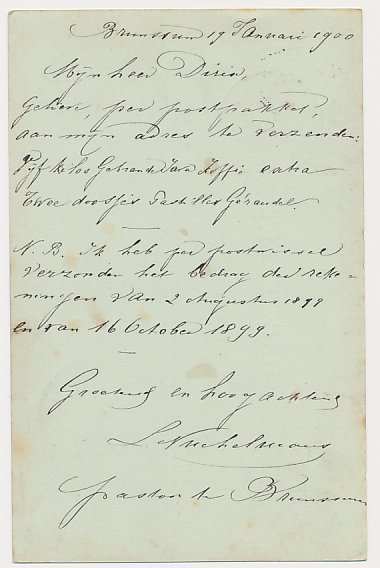 Brunssum 19 Januari 1900
Mijnheer
Gelieve, per postpakket,
aan mijn adres te verzenden:
Vijf kilos Gebrande Java Koffie extra
Twee doosjes Pastilles Géraudel.
N.B. ik heb per postwissel
verzonden het bedrag der reke=
ningen van 2 Augustus 1899
en van 16 October 1899.
Groetend en hoogachtend
pastoor te Brunssum